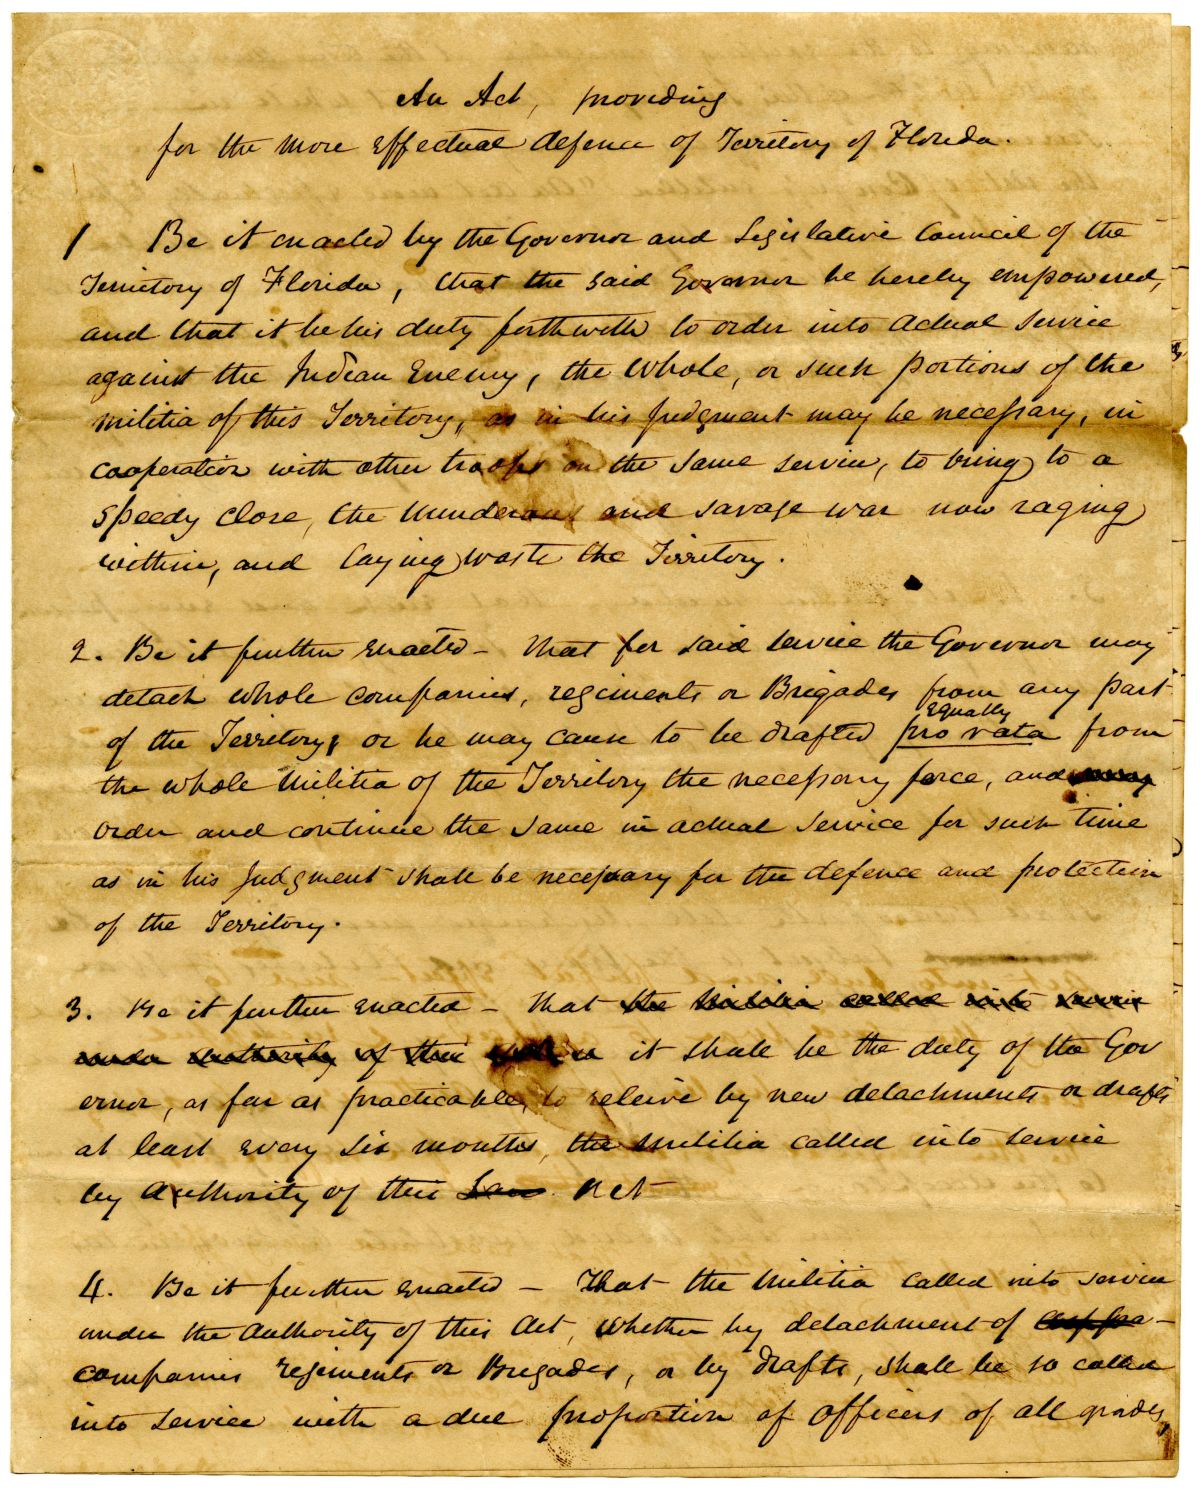 An Act, providing
for the more effectual defence of Territory of Florida.
1 Be it enacted by the Governor and Legislative Council of the
Territory of Florida, that the said Governor be hereby empowered,
and that it be his duty forthwith to order into actual service
against the Indian Enemy, the whole, or such portions of the
militia of this Territory, as in his judgment may be necessary, in
cooperation with other troops on the same service, to bring to a
speedy close, the murderous and savage war now raging
within, and laying waste the Territory.
2. Be it further enacted – that for said service the Governor may
detach whole companies, regiments or Brigades from any part
of the Territory, or he may cause to be drafted pro rata from
Equally
the whole Militia of the Territory the necessary force, and
order and continue the same in actual service for such time
as in his Judgment shall be necessary for the defence and protection
of the Territory.
3. Be it further enacted – that the Militia called into service
under authority of this it shall be the duty of the Gov
ernor, as far as practicable, to releive by new detachments or drafts
at least every six months, the militia called into service
by authority of this Law Act
4. Be it further enacted – That the Militia called into service
under the authority of this Act, whether by detachment of
companies regiments or Brigades, or by drafts, shall be so called
into service with a due proportion of officers of all grades,